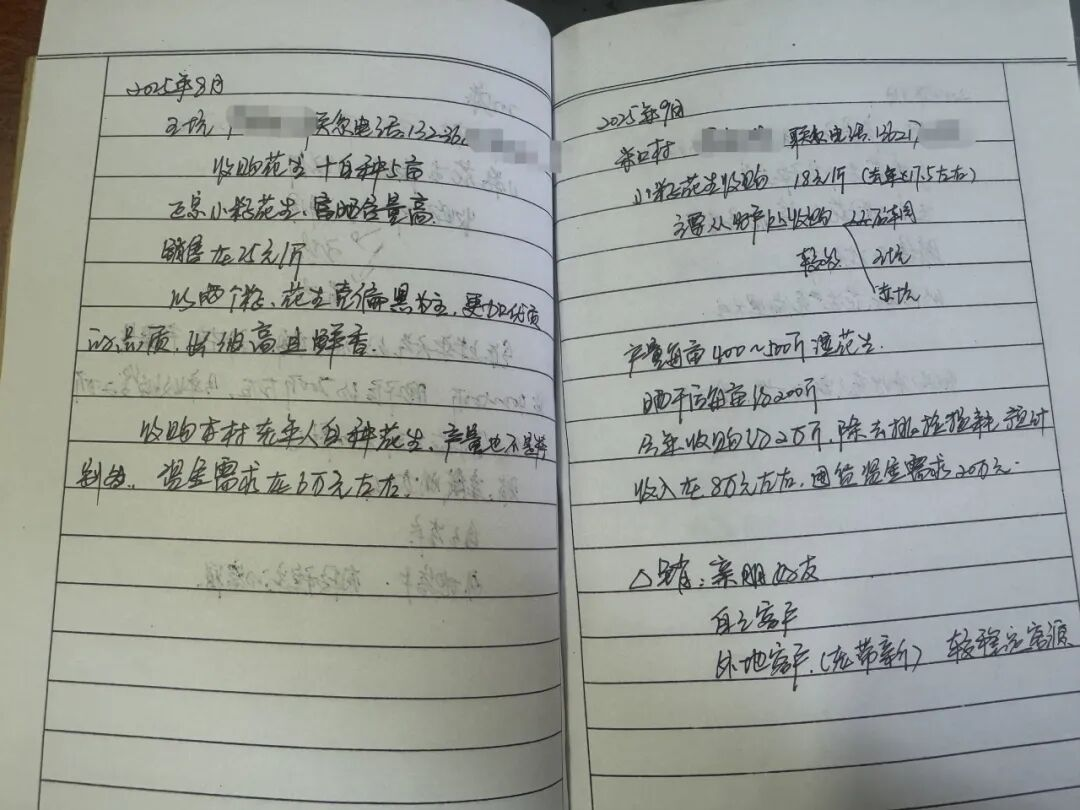 2025年8月
王坑, 联系电话:13236
收购花生 十自种5亩
正宗小籽花生、富肥含量高.
销售在25元/斤
以两个籽、花生壳偏黑为主,更加优质
的品质.出油高且鲜香.
收购本村老年人自种花生、产量也不是特
别多.. 资金需求在6万元左右.
2025年9月
村 联系电话:13621,
小籽花生收购 18元/斤 (去年如17.5左右)
主要从 收购
较多 王坑
产量每亩400~500斤湿花生.
晒干后每亩约200斤
今年收购约2万斤,除去 损耗预计
收入在8万元左右,囤货资金需求20万元.
△销售:亲朋好友
自主客户
外地客户.(老带新) 较稳定客源